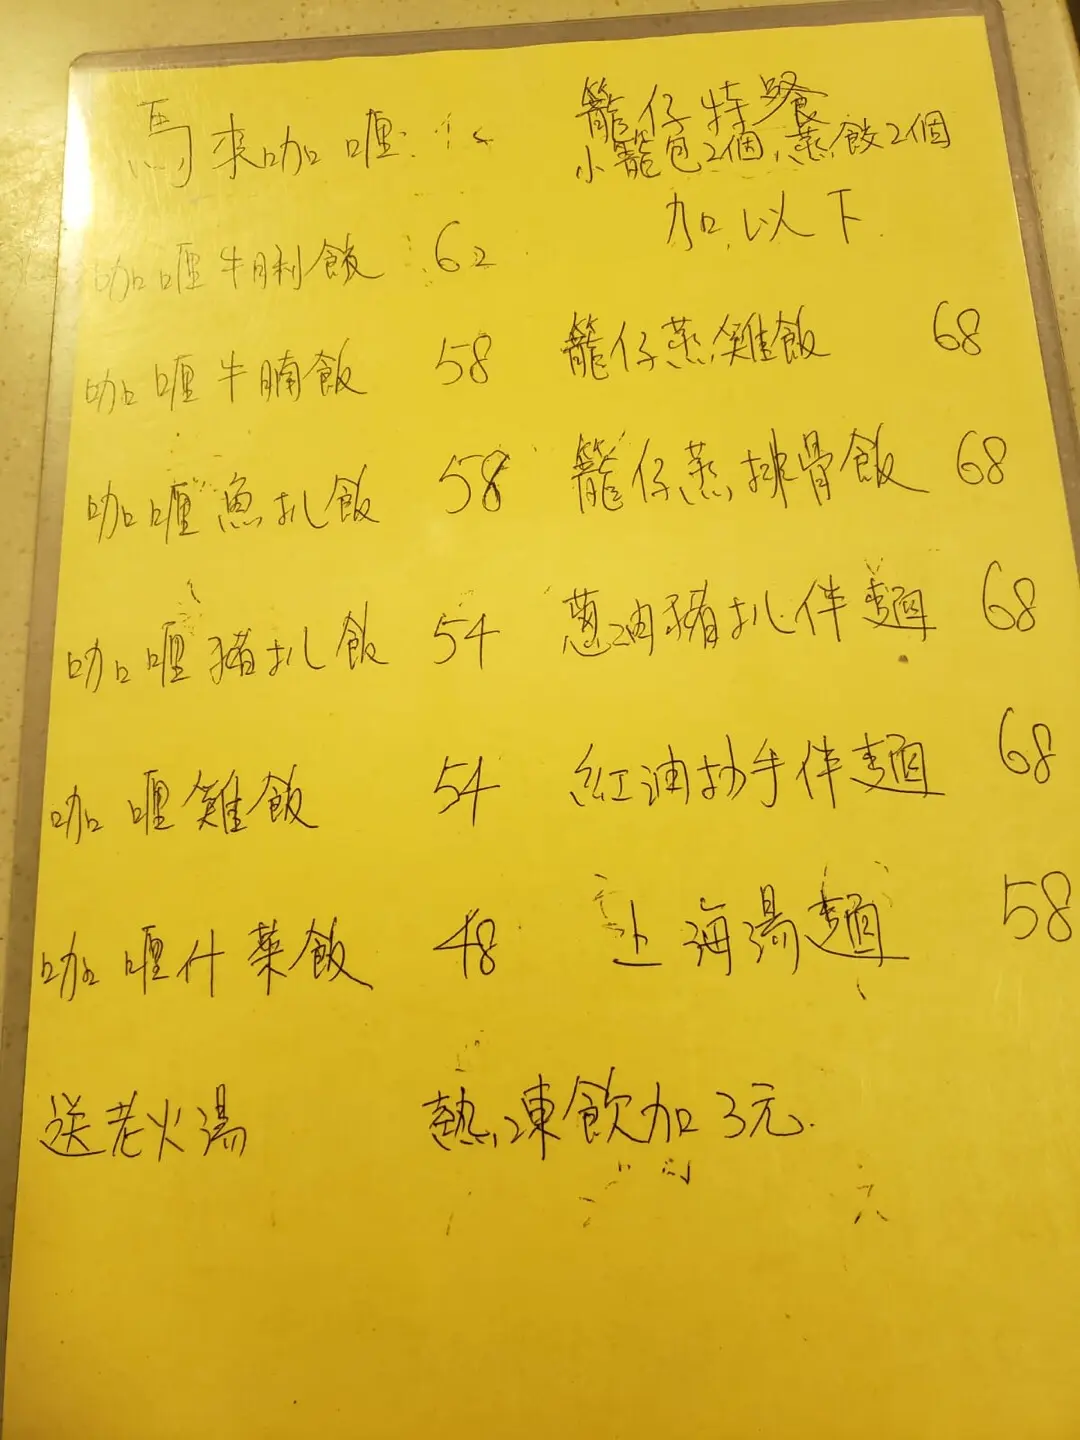 馬來咖喱
咖喱牛脷飯 62
咖喱牛腩飯 58
咖喱魚扒飯 58
咖喱豬扒飯 54
咖喱雞飯 54
咖喱什菜飯 48
送老火湯
籠仔特餐
小籠包2個,蒸餃2個
加以下
籠仔蒸雞飯 68
籠仔蒸排骨飯 68
蔥油豬扒伴麵 68
紅油抄手伴麵 68
上海湯麵 58
熱凍飲加3元